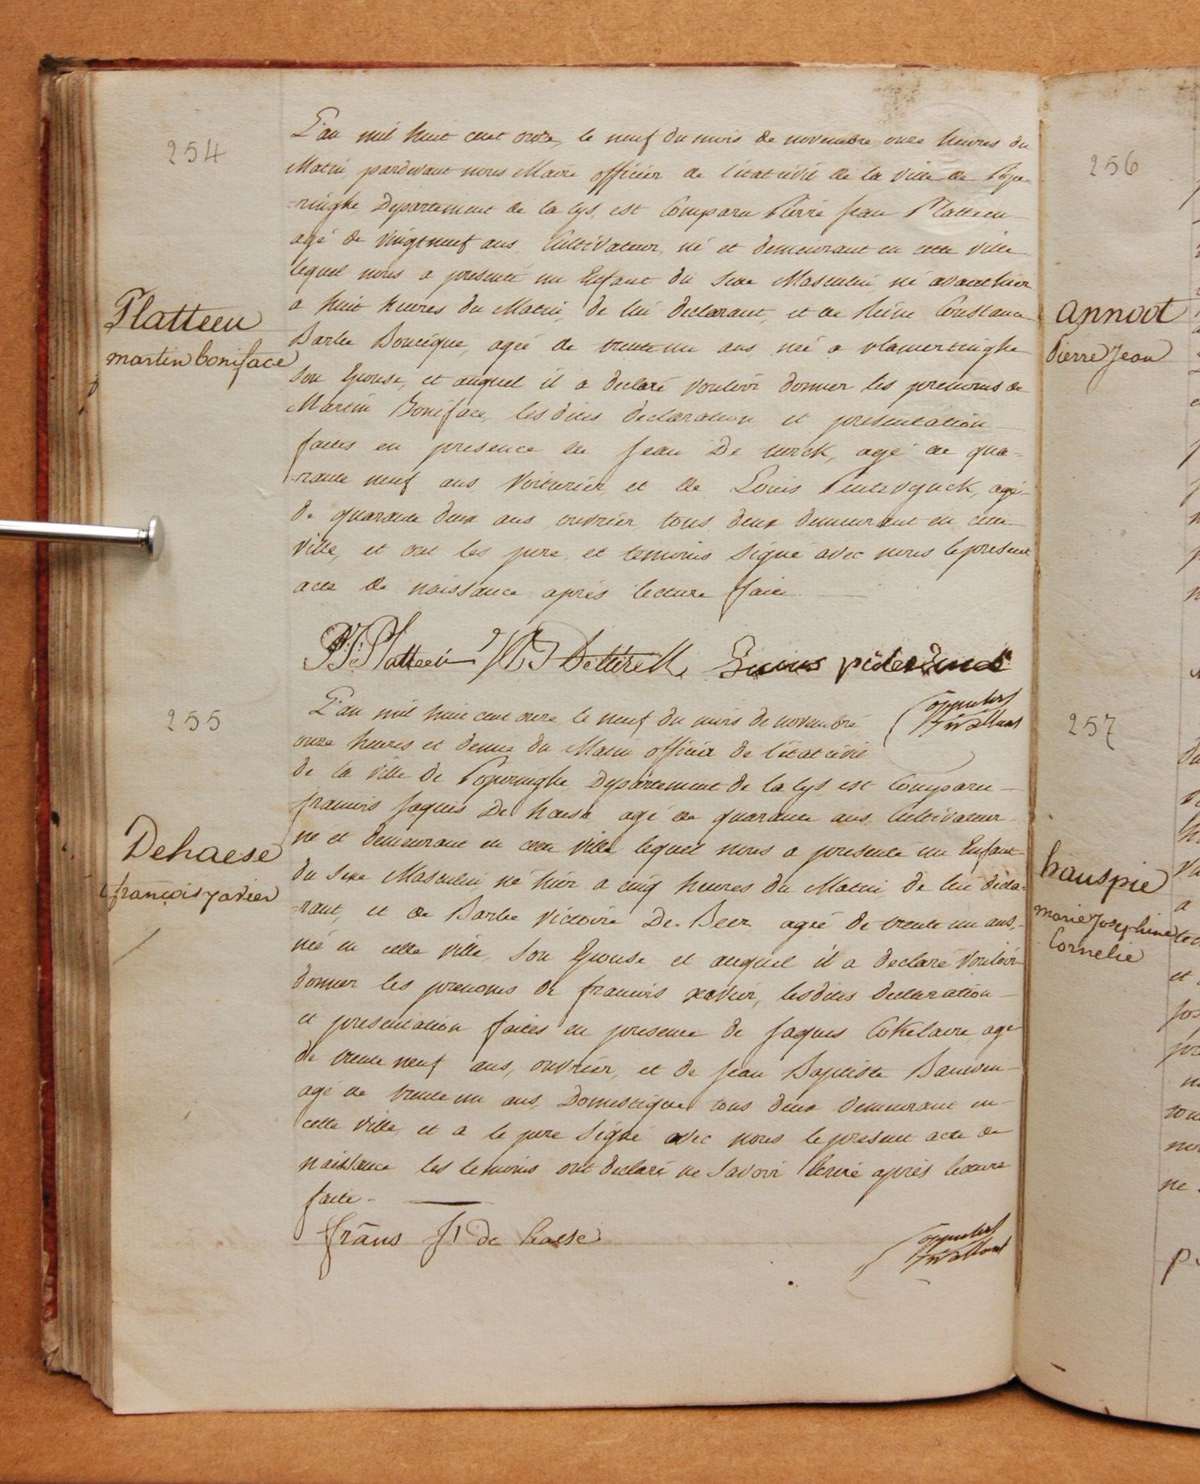 254
L'an mil huit cent onze, le neuf du mois de novembre onze heures du
Matin pardevant nous Maire officier de l'état civil de la ville de Pope-
-ringhe Département de la Lys, est Comparu Pierre Jean Platteeu
agé de vingt neuf ans Cultivateur, né et demeurant en cette ville
lequel nous a presenté un Enfant du Sexe Masculin né avant hier
a huit heures du Matin, de lui declarant, et de Constance
Barbe agée de trente un ans née a vlamertinghe
Son Epouse, et auquel il a declaré vouloir donner les prenoms de
Martin Boniface, les dites declaration et presentation
faites en presence de Jean De turck, agé de qua-
-rante neuf ans Voiturier et de Louis agé
de quarante deux ans ouvrier tous deux demeurant en cette
ville, et ont les pere et temoins Signé avec nous le present
acte de naissance après lecture faite
Platteeu
martin boniface
PJ Platteeu
255
L'an mil huit cent onze le neuf du mois de novembre
onze heures et demie du Matin officier de l'état civil
de la ville de Poperinghe Département de la Lys est Comparu
francois Jaques De haese agé de quarante ans, Cultivateur
né et demeurant en cette ville lequel nous a presenté un Enfant
du Sexe Masculin né hier a cinq heures du Matin de lui decla-
-rant, et de Barbe Victoire De Beer agée de trente un ans,
née en cette ville, Son Epouse et auquel il a declaré vouloir
donner les prenoms de francois xavier, les dites declaration
et presentation faites en presence de Jaques Cokelaere agé
de trente neuf ans, ouvrier, et de Jean Baptiste
agé de trente un ans Domestique tous deux demeurant en
cette ville et a le pere Signé avec nous le present acte de
naissance les temoins ont declaré ne Savoir Ecrire après lecture
faite.
Dehaese
françois xavier
frans J de haese
256
annoot
pierre Jean
257
hauspie
marie Josephine
Cornelie